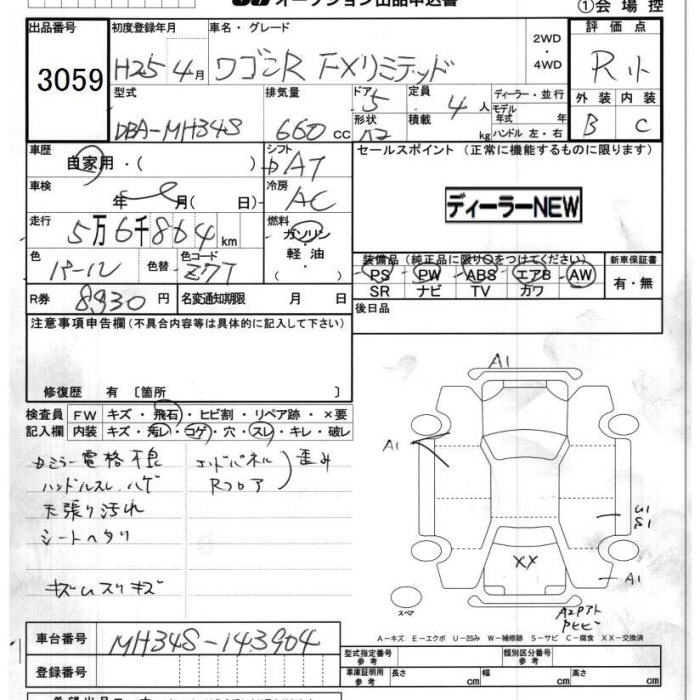 オークション出品申込書
①会場控
出品番号
3059
初度登録年月
H25 4月
車名・グレード
ワゴンR FXリミテッド
2WD
・
4WD
評価点
R小
外装 内装
B C
型式
DBA-MH34S
排気量
660 cc
ドア 5
形状
定員 4 人
積載 kg
ディーラー・並行
モデル年式 年
ハンドル 左・右
車歴
自家用・( )
シフト
AT
車検
年 月( 日)
冷房
AC
走行
5万6千864 km
燃料
ガソリン
・
軽油
色
パール
色替
色コード
Z7T
( )
R券 8930 円
名変通知期限 月 日
セールスポイント (正常に機能するものに限ります)
ディーラーNEW
装備品 (純正品に限り○をつけてください)
PS PW ABS エアB AW
SR ナビ TV カワ
新車保証書
有・無
後日品
注意事項申告欄(不具合内容等は具体的に記入して下さい)
修復歴 有 〔箇所 〕
検査員記入欄
FW キズ・飛石・ヒビ割・リペア跡・×要
内装 キズ・汚レ・コゲ・穴・スレ・キレ・破レ
カミラー電格不良
ハンドルスレ.ハゲ
天張り汚れ
シートヘタリ
キズムスリキズ
エンドパネル
Rフロア
歪み
A1
A1
U1
S1
XX
A1
スペア
A2
A-キズ E-エクボ U-凹み W-補修跡 S-サビ C-腐食 XX-交換済
車台番号
MH34S-143904
登録番号
型式指定番号
参考
類別区分番号
参考
車庫証明用
参考
長さ cm
幅 cm
高さ cm